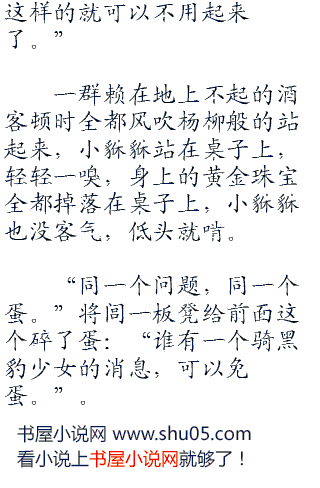 这样的就可以不用起来
了。”
一群赖在地上不起的酒
客顿时全都风吹杨柳般的站
起来，小貅貅站在桌子上，
轻轻一嗅，身上的黄金珠宝
全都掉落在桌子上，小貅貅
也没客气，低头就啃。
“同一个问题，同一个
蛋。”将闾一板凳给前面这
个碎了蛋：“谁有一个骑黑
豹少女的消息，可以免
蛋。”。
书屋小说网 www.shu05.com
看小说上书屋小说网就够了！